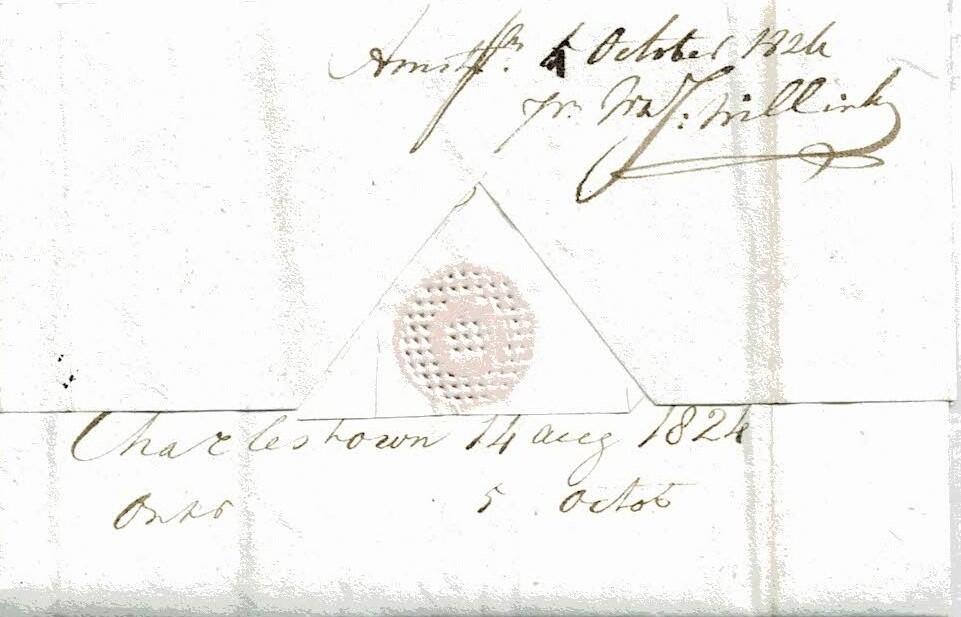 Amstdm. 5 October 1824
pr. Wm J: Willink
Charlestown 14 aug 1824
5 Octob